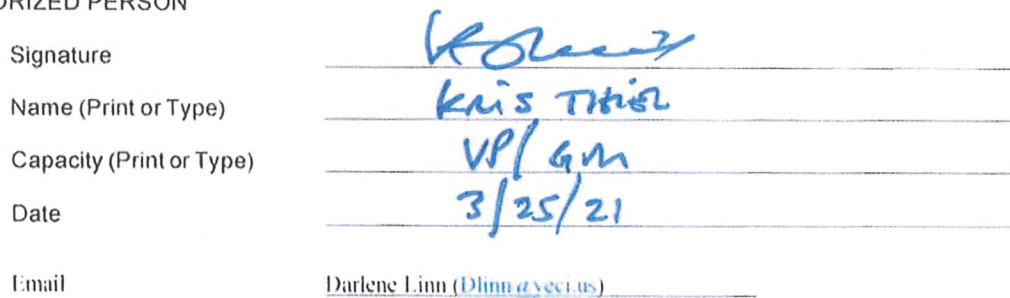 ORIZED PERSON
Signature
Name (Print or Type) KRIS THIEL
Capacity (Print or Type) VP/GM
Date 3/25/21
Email Darlene Linn (Dlinn@veci.us)